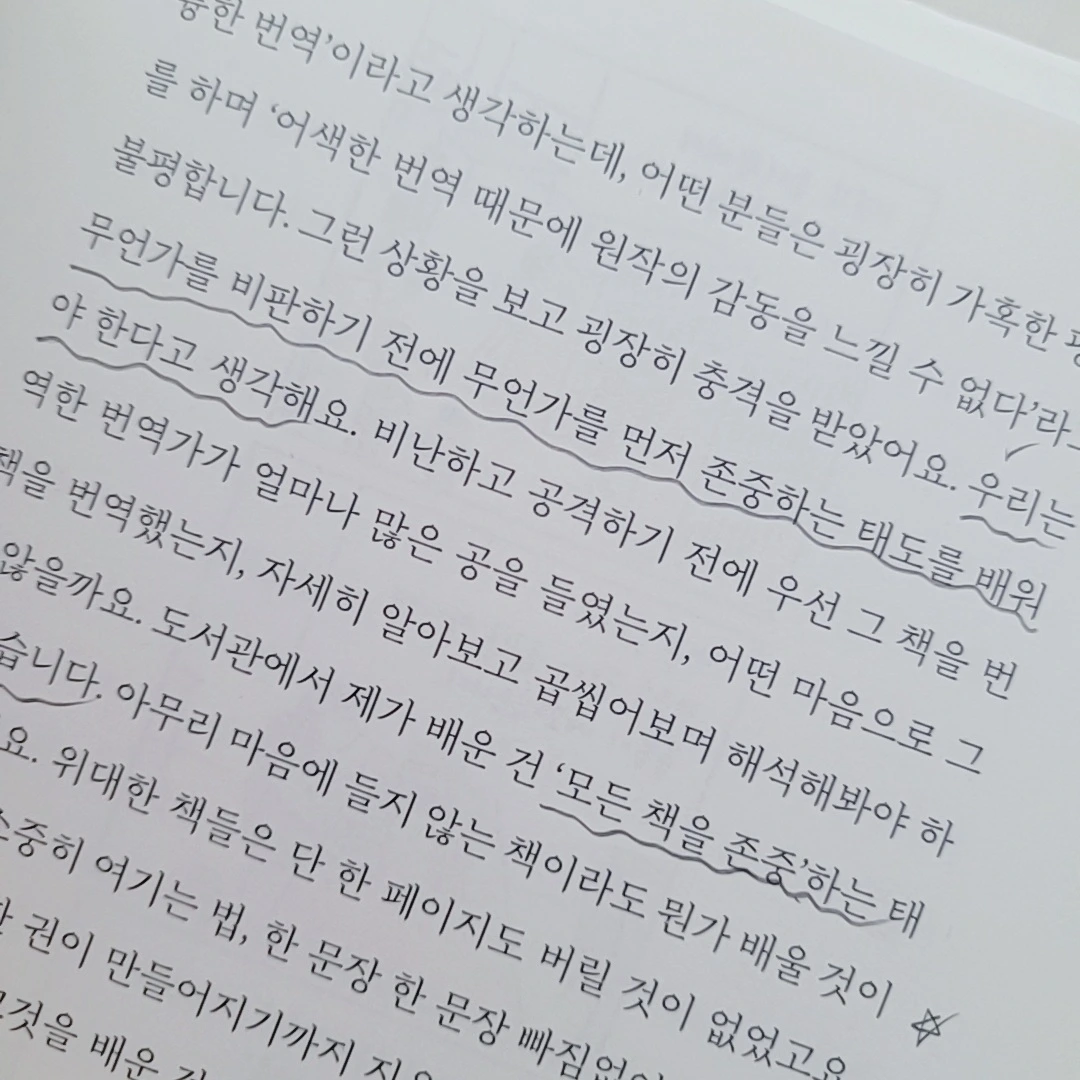 번역’이라고 생각하는데, 어떤 분들은 굉장히 가혹한
를 하며 ‘어색한 번역 때문에 원작의 감동을 느낄 수 없다’라
불평합니다. 그런 상황을 보고 굉장히 충격을 받았어요. 우리는
무언가를 비판하기 전에 무언가를 먼저 존중하는 태도를 배워
야 한다고 생각해요. 비난하고 공격하기 전에 우선 그 책을 번
역한 번역가가 얼마나 많은 공을 들였는지, 어떤 마음으로 그
책을 번역했는지, 자세히 알아보고 곱씹어보며 해석해봐야 하
않을까요. 도서관에서 제가 배운 건 ‘모든 책을 존중’하는 태
습니다. 아무리 마음에 들지 않는 책이라도 뭔가 배울 것이
요. 위대한 책들은 단 한 페이지도 버릴 것이 없었고요
소중히 여기는 법, 한 문장 한 문장 빠짐없이
권이 만들어지기까지
것을 배운